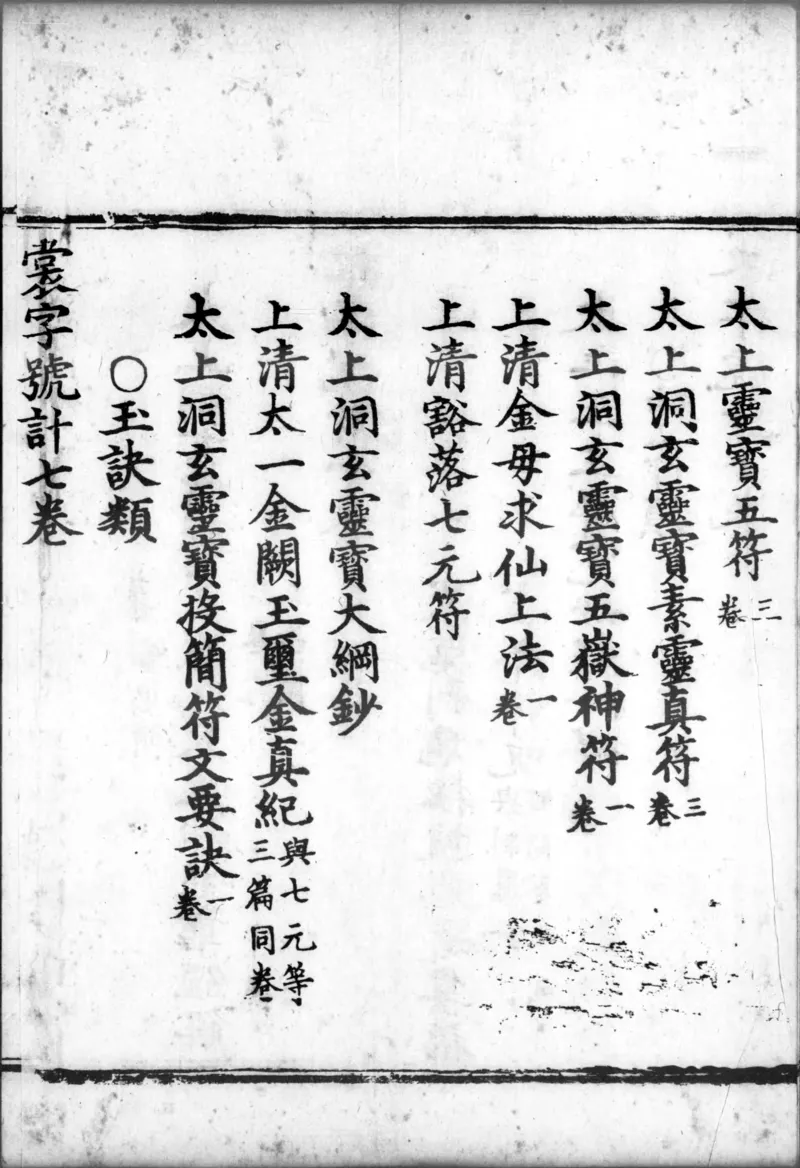 太上靈寶五符三卷
太上洞玄靈寶素靈真符三卷
太上洞玄靈寶五嶽神符一卷
上清金母求仙上法一卷
上清豁落七元符
太上洞玄靈寶大綱鈔
上清太一金闕玉璽金真紀與七元等三篇同卷
太上洞玄靈寶投簡符文要訣一卷
○玉訣類
裳字號計七卷